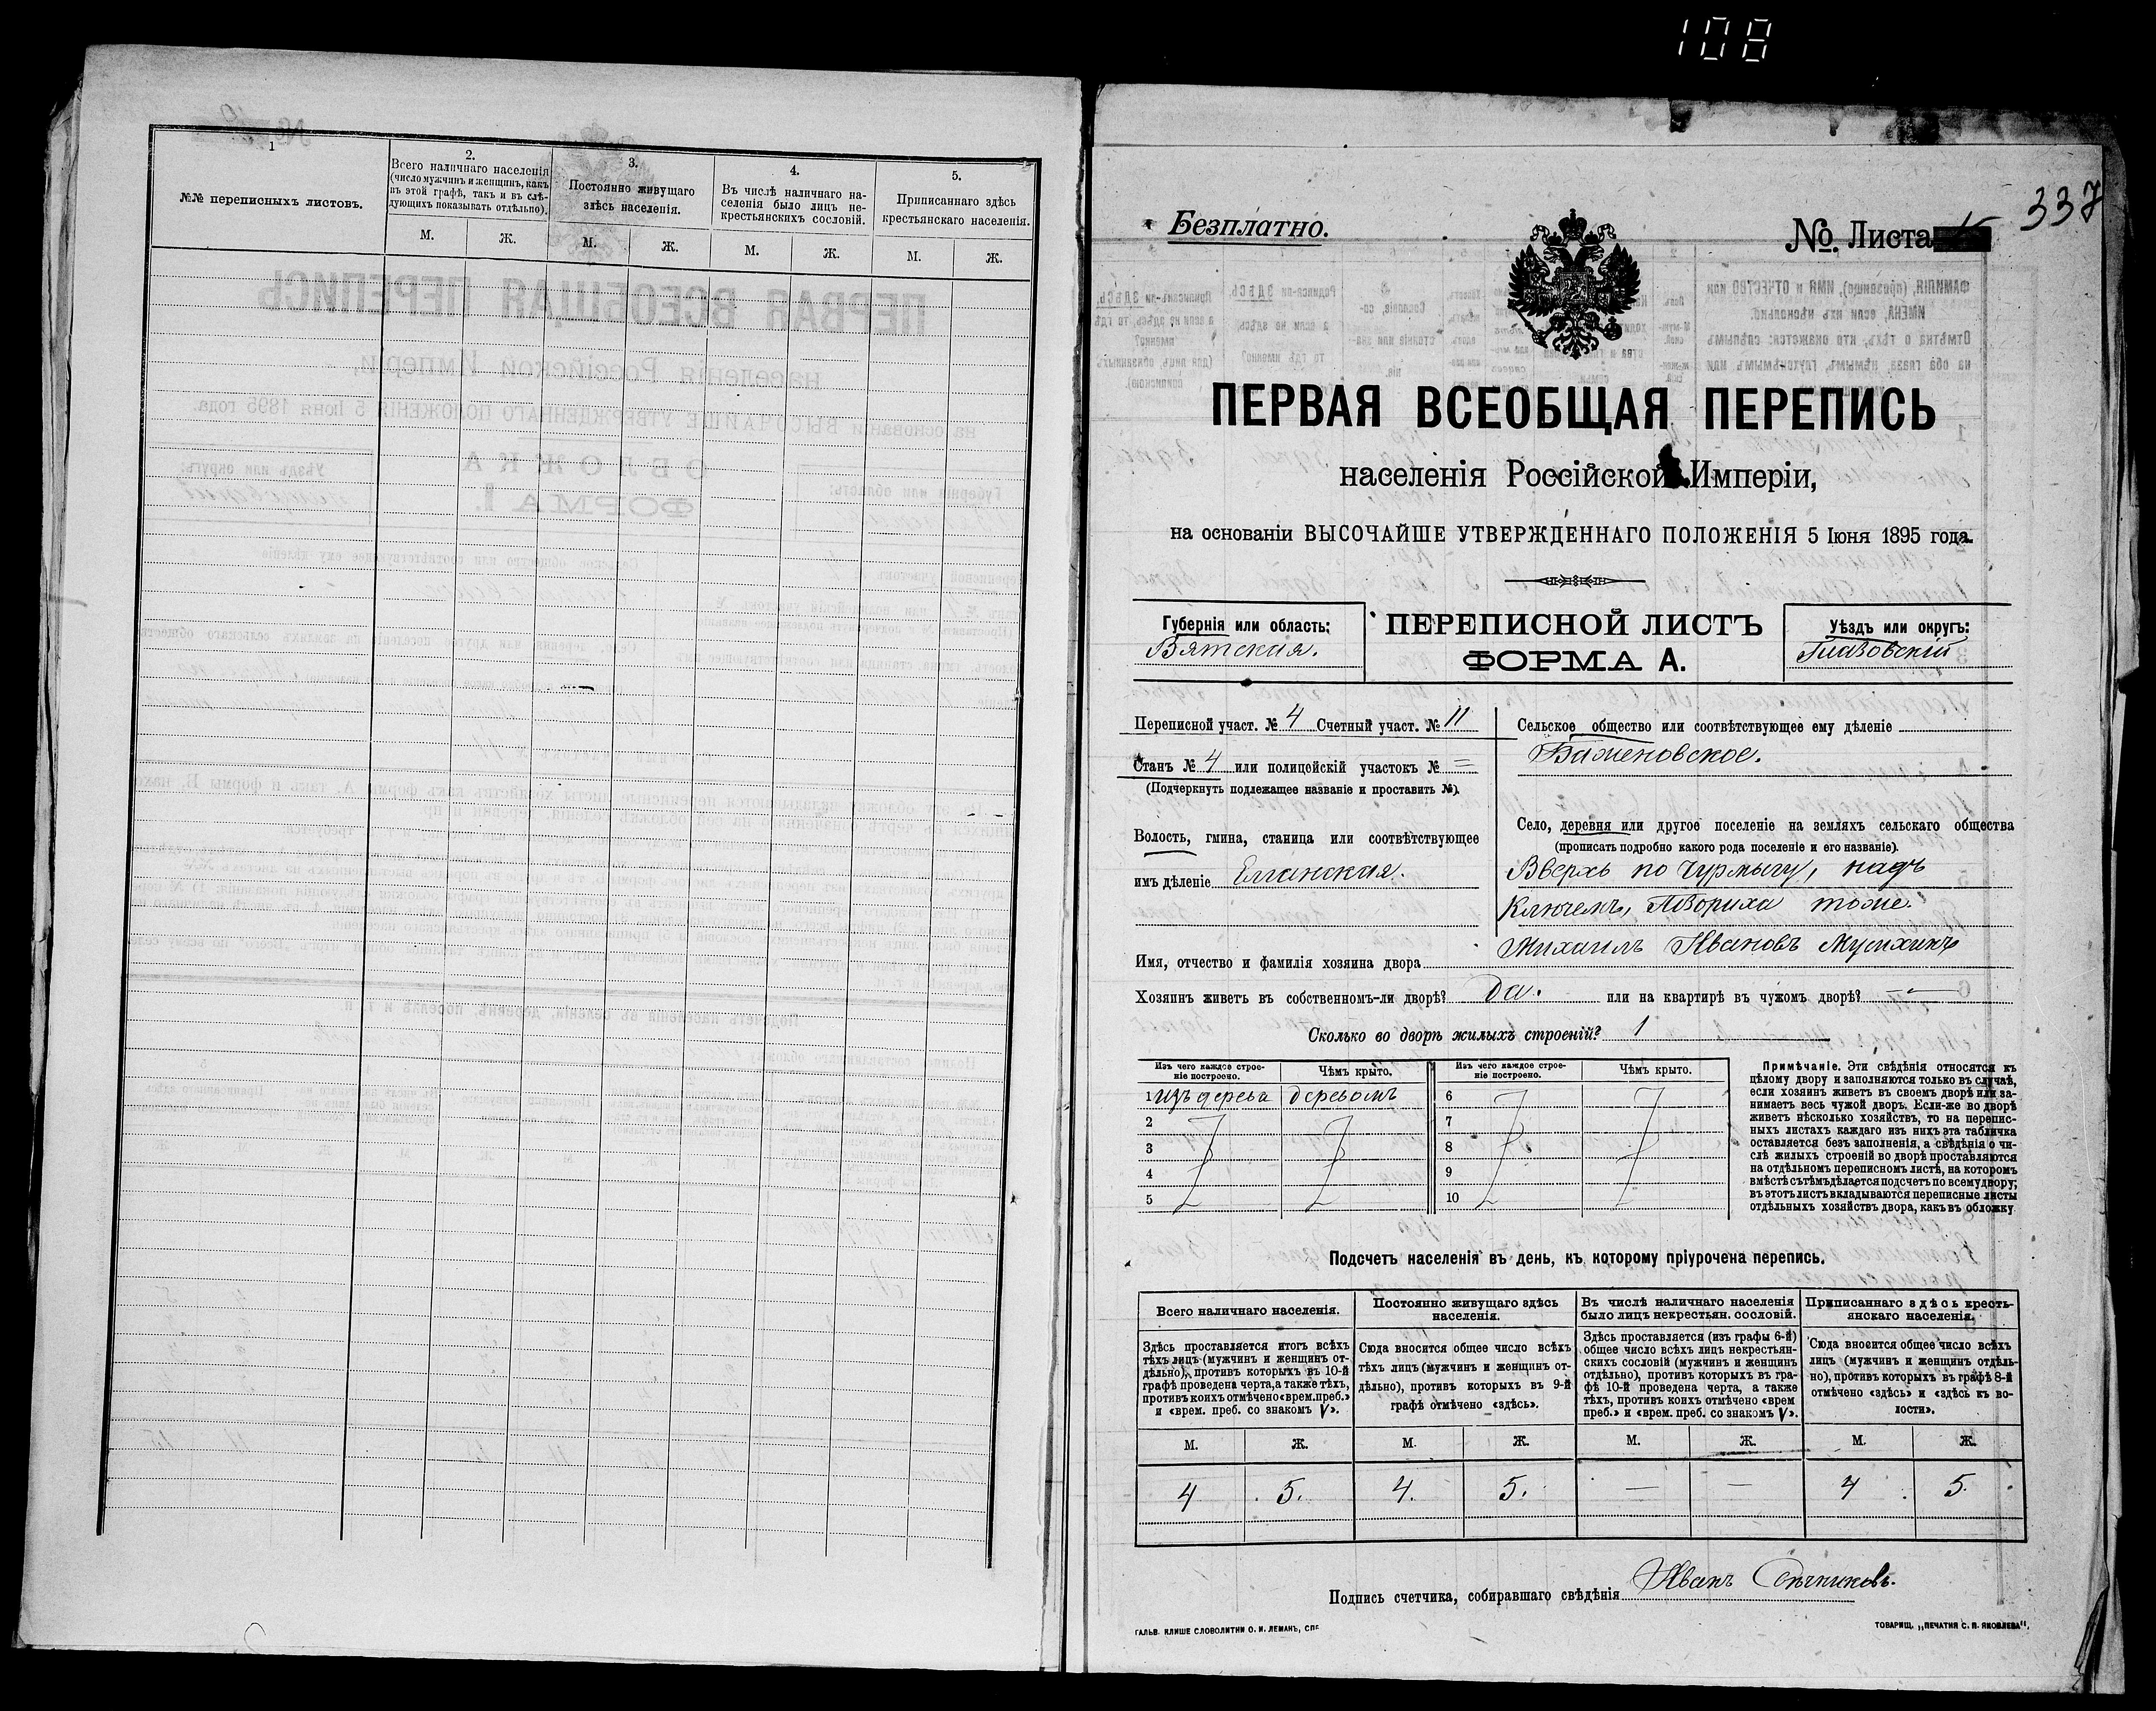 108
1
№№ переписныхъ листовъ.
2.
Всего наличнаго населенія
(число мужчинъ и женщинъ, какъ
въ этой графѣ, такъ и въ слѣ-
дующихъ показывать отдѣльно).
3.
Постоянно живущаго
здѣсь населенія.
4.
Въ числѣ наличнаго на-
селенія было лицъ не-
крестьянскихъ сословій.
5.
Приписаннаго здѣсь
крестьянскаго населенія.
М. Ж. М. Ж. М. Ж. М. Ж.
337
Безплатно.
№. Листа
ПЕРВАЯ ВСЕОБЩАЯ ПЕРЕПИСЬ
населенія Россійской Имперіи,
на основаніи ВЫСОЧАЙШЕ УТВЕРЖДЕННАГО ПОЛОЖЕНІЯ 5 Іюня 1895 года.
Губернія или область:
Вятская.
ПЕРЕПИСНОЙ ЛИСТЪ
ФОРМА А.
Уѣздъ или округъ:
Глазовскій
Переписной участ. № 4 Счетный участ. № 11
Станъ № 4 или полицейскій участокъ № =
(Подчеркнуть подлежащее названіе и проставить №).
Волость, гмина, станица или соотвѣтствующее
имъ дѣленіе Елганская.
Сельское общество или соотвѣтствующее ему дѣленіе
Баженовское.
Село, деревня или другое поселеніе на земляхъ сельскаго общества
(прописать подробно какого рода поселеніе и его названіе).
Вверхъ по Чурмыгу, надъ
Ключемъ, тоже.
Имя, отчество и фамилія хозяина двора Михаилъ Ивановъ
Хозяинъ живетъ въ собственномъ-ли дворѣ? Да. или на квартирѣ въ чужомъ дворѣ? —
Сколько во дворѣ жилыхъ строеній? 1
Изъ чего каждое строе-
ніе построено.
Чѣмъ крыто.
Изъ чего каждое строе-
ніе построено.
Чѣмъ крыто.
1 изъ дерева деревомъ 6
2 7
3 8
4 9
5 10
Примѣчаніе. Эти свѣдѣнія относятся къ
цѣлому двору и заполняются только въ случаѣ,
если хозяинъ живетъ въ своемъ дворѣ или за-
нимаетъ весь чужой дворъ. Если-же во дворѣ
живетъ нѣсколько хозяйствъ, то на перепис-
ныхъ листахъ каждаго изъ нихъ эта табличка
оставляется безъ заполненія, а свѣдѣнія о чи-
слѣ жилыхъ строеній во дворѣ проставляются
на отдѣльномъ переписномъ листѣ, на которомъ
вмѣстѣ съ тѣмъ дѣлается подсчетъ по всему двору;
въ этотъ листъ вкладываются переписные листы
отдѣльныхъ хозяйствъ двора, какъ въ обложку
Подсчетъ населенія въ день, къ которому пріурочена перепись.
Всего наличнаго населенія.
Здѣсь проставляется итогъ всѣхъ
тѣхъ лицъ (мужчинъ и женщинъ от-
дѣльно), противъ которыхъ въ 10-й
графѣ проведена черта, а также тѣхъ,
противъ коихъ отмѣчено «врем. преб.»
и «врем. преб. со знакомъ V».
Постоянно живущаго здѣсь
населенія.
Сюда вносится общее число всѣхъ
тѣхъ лицъ (мужчинъ и женщинъ от-
дѣльно), противъ которыхъ въ 9-й
графѣ отмѣчено «здѣсь».
Въ числѣ наличнаго населенія
было лицъ некрестьян. сословій.
Здѣсь проставляется (изъ графы 6-й)
общее число всѣхъ лицъ некрестьян-
скихъ сословій (мужчинъ и женщинъ
отдѣльно), противъ которыхъ въ гра-
фѣ 10-й проведена черта, а также
тѣхъ, противъ коихъ отмѣчено «врем
преб.» и «врем. преб. со знакомъ V».
Приписаннаго здѣсь кресть-
янскаго населенія.
Сюда вносится общее число всѣхъ
лицъ (мужчинъ и женщинъ отдѣль-
но), противъ которыхъ въ графѣ 8-й
отмѣчено «здѣсь» и «здѣсь къ во-
лости».
М. Ж. М. Ж. М. Ж. М. Ж.
4 5. 4. 5. — — 4 5.
Подпись счетчика, собиравшаго свѣдѣнія Иванъ
ГАЛЬВ. КЛИШЕ СЛОВОЛИТНИ О. И. ЛЕМАНЪ, СПБ
ТОВАРИЩ. „ПЕЧАТНЯ С. П. ЯКОВЛЕВА".